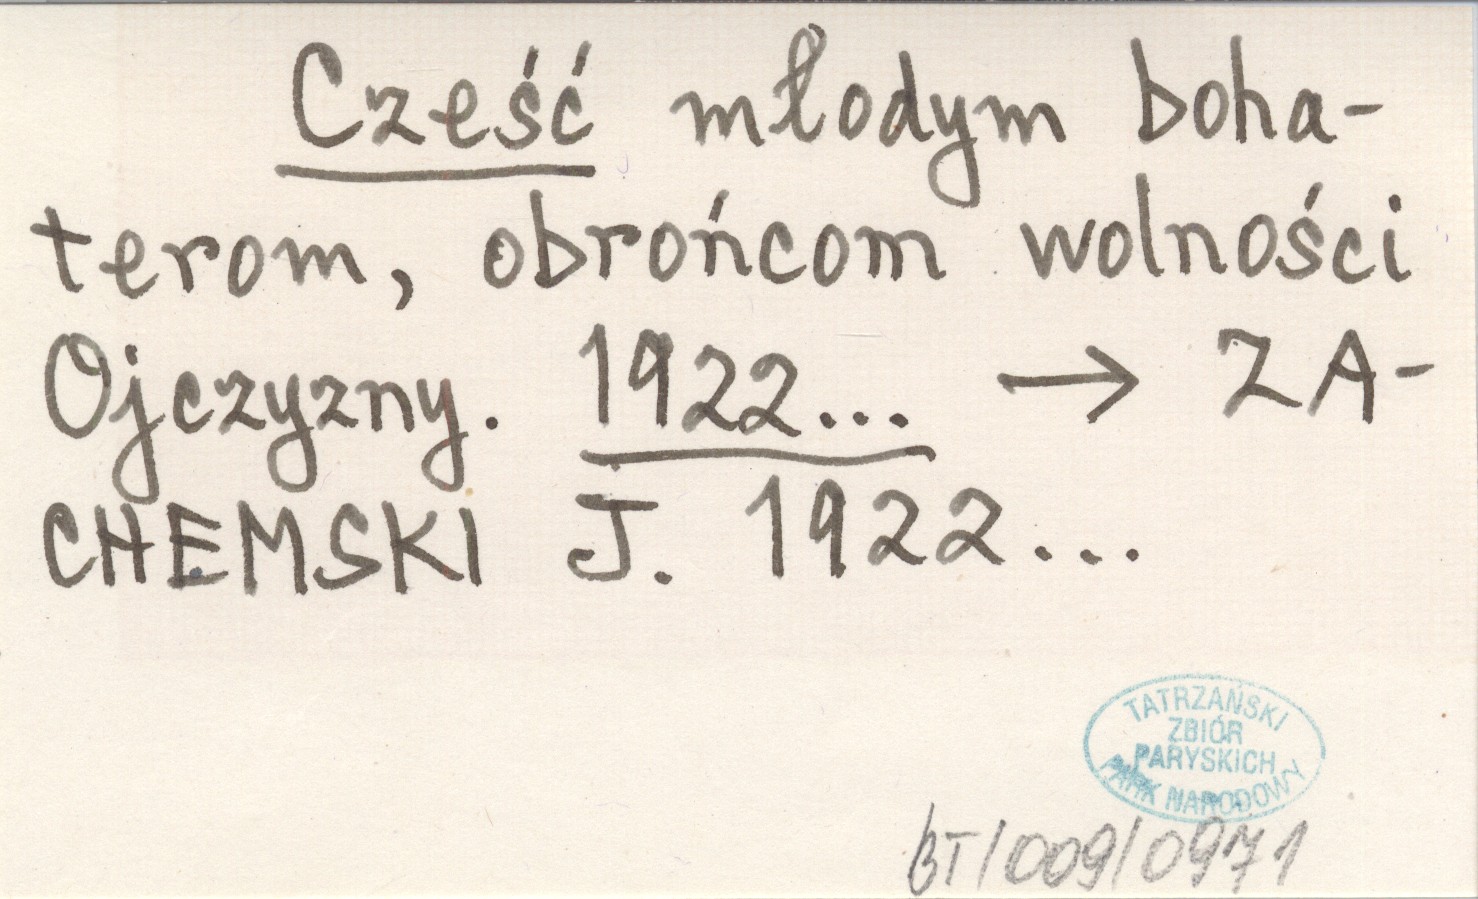 Cześć młodym boha-
terom, obrońcom wolności
Ojczyzny. 1922... → ZA-
CHEMSKI J. 1922...
TATRZAŃSKI
ZBIÓR
PARYSKICH
PARK NARODOWY
BT/009/0971